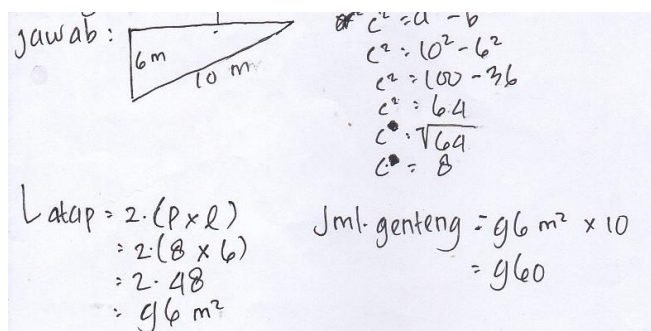 jawab :
6 m
10 m
c² = a - b
c² = 10² - 6²
c² = 100 - 36
c² = 64
c = √64
c = 8
L atap = 2. (p x l)
= 2. (8 x 6)
= 2. 48
= 96 m²
Jml. genteng = 96 m² x 10
= 960